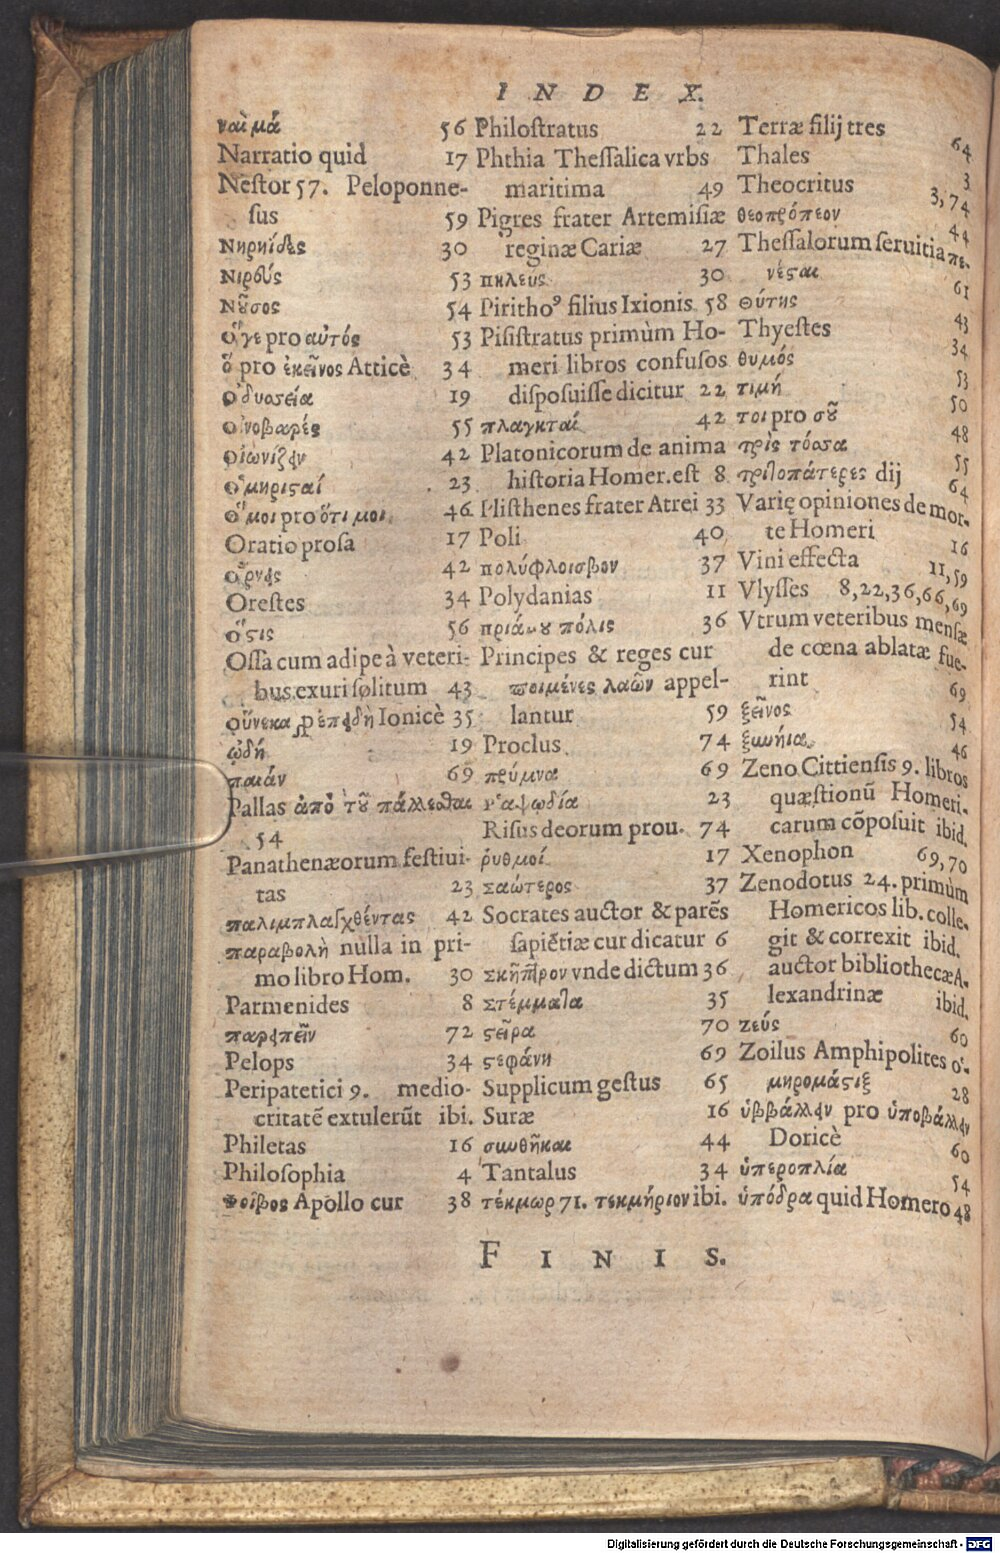 INDEX.
ναὶ μά 56
Narratio quid 17
Nestor 57. Peloponne-
sus 59
Νηρηίδες 30
Νιρεύς 53
Νοῦσος 54
ὅγε pro αὐτός 53
ὅ pro ἐκεῖνος Atticè 34
ὀδυσσεία 19
οἰνοβαρές 55
οἰωνίζειν 42
ὁμηρισταί 23
ὅμοι pro ὅτι μοι 46
Oratio prosa 17
ὄρνις 42
Orestes 34
ὅστις 56
Ossa cum adipe à veteri-
bus exuri solitum 43
οὕνεκα Ionicè 35
ᾠδή 19
παιάν 69
Pallas ἀπὸ τοῦ πάλλεσθαι
54
Panathenæorum festiui-
tas 23
παλιμπλαγχθέντας 42
παραβολὴ nulla in pri-
mo libro Hom. 30
Parmenides 8
παρειπεῖν 72
Pelops 34
Peripatetici 9. medio-
critatē extulerūt ibi.
Philetas 16
Philosophia 4
Φοῖβος Apollo cur 38
Philostratus 22
Phthia Thessalica vrbs
maritima 49
Pigres frater Artemisiæ
reginæ Cariæ 27
πηλεύς 30
Pirithoꝰ filius Ixionis 58
Pisistratus primùm Ho-
meri libros confusos
disposuisse dicitur 22
πλαγκταί 42
Platonicorum de anima
historia Homer. est 8
Plisthenes frater Atrei 33
Poli 40
πολύφλοισβον 37
Polydanias 11
πριάμου πόλις 36
Principes & reges cur
ποιμένες λαῶν appel-
lantur 59
Proclus 74
πρύμνα 69
ῥαψωδία 23
Risus deorum prou. 74
ῥυθμοί 17
σαώτερος 37
Socrates auctor & parēs
sapiētiæ cur dicatur 6
σκῆπτρον vnde dictum 36
στέμματα 35
σειρα 70
στεφάνη 69
Supplicum gestus 65
Suræ 16
συνθῆκαι 44
Tantalus 34
τέκμωρ 71. τεκμήριον ibi.
Terræ filij tres 64
Thales 3
Theocritus 3, 74
θεοπρόπεον 44
Thessalorum seruitia πε-
νέσται 61
θύτης 43
Thyestes 34
θυμός 53
τιμή 50
τοι pro σοῦ 48
τρὶς τόσσα 55
τριτοπάτερες dij 64
Varię opiniones de mor-
te Homeri 16
Vini effecta 11, 59
Vlysses 8, 22, 36, 66, 69
Vtrum veteribus mensæ
de cœna ablatæ fue-
rint 69
ξεῖνος 54
ξυνήια 46
Zeno Cittiensis 9. libros
quæstionū Homeri-
carum cōposuit ibid.
Xenophon 69, 70
Zenodotus 24. primùm
Homericos lib. colle-
git & correxit ibid.
auctor bibliothecæ A-
lexandrinæ ibid.
ζεύς 60
Zoilus Amphipolites ὁ-
μηρομάστιξ 28
ὑββάλλειν pro ὑποβάλλειν
Doricè 60
ὑπεροπλία 54
ὑπόδρα quid Homero 48
FINIS.
Digitalisierung gefördert durch die Deutsche Forschungsgemeinschaft - DFG